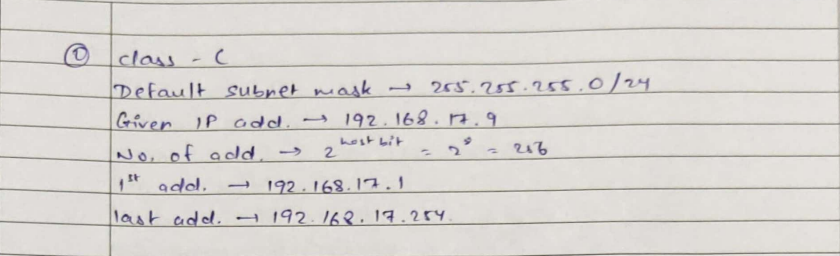 ① class - C
Default subnet mask → 255.255.255.0/24
Given IP add. → 192.168.17.9
No. of add. → 2^host bit = 2^8 = 256
1st add. → 192.168.17.1
last add. → 192.168.17.254